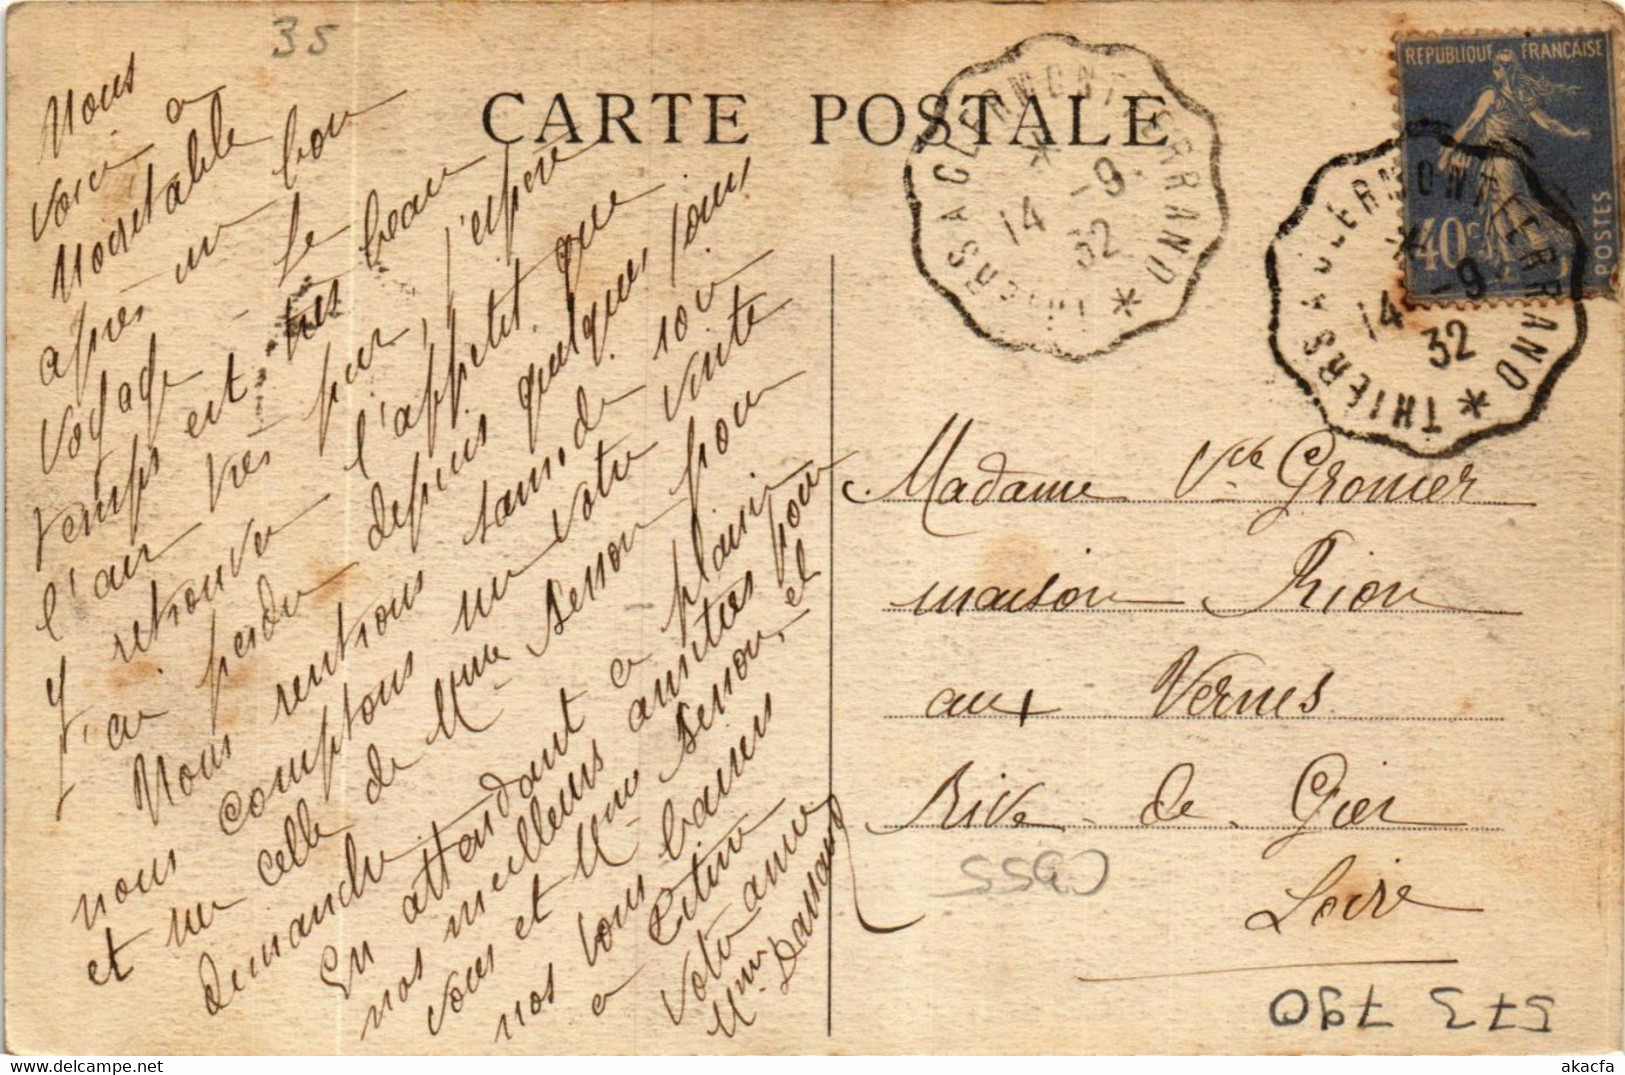 35
CARTE POSTALE
Nous
voici à
Noirétable
après un bon
voyage. Le
temps est très beau
l'air très pur, j'espère
y retrouver l'appétit que
j'ai perdu depuis quelques jours
Nous rentrons samedi soir
nous comptons sur votre visite
et sur celle de Mme Sesson pour
dimanche
En attendant ce plaisir
nos meilleurs amitiés pour
vous et Mme Sesson, et
nos bons baisers
à Titine
Votre amie
Mme Dassaud
THIERS A CLERMONT FERRAND
14 -9
32
REPUBLIQUE FRANÇAISE
POSTES
40c
THIERS A CLERMONT FERRAND
14 -9
32
Madame Vve Gronier
maison Rion
aux Vernes
Rive-de-Gier
Loire
C955
573 790
akacfa